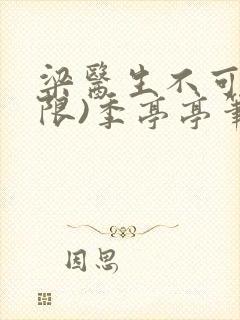 梁医生不可
限)季亭亭筆
因思